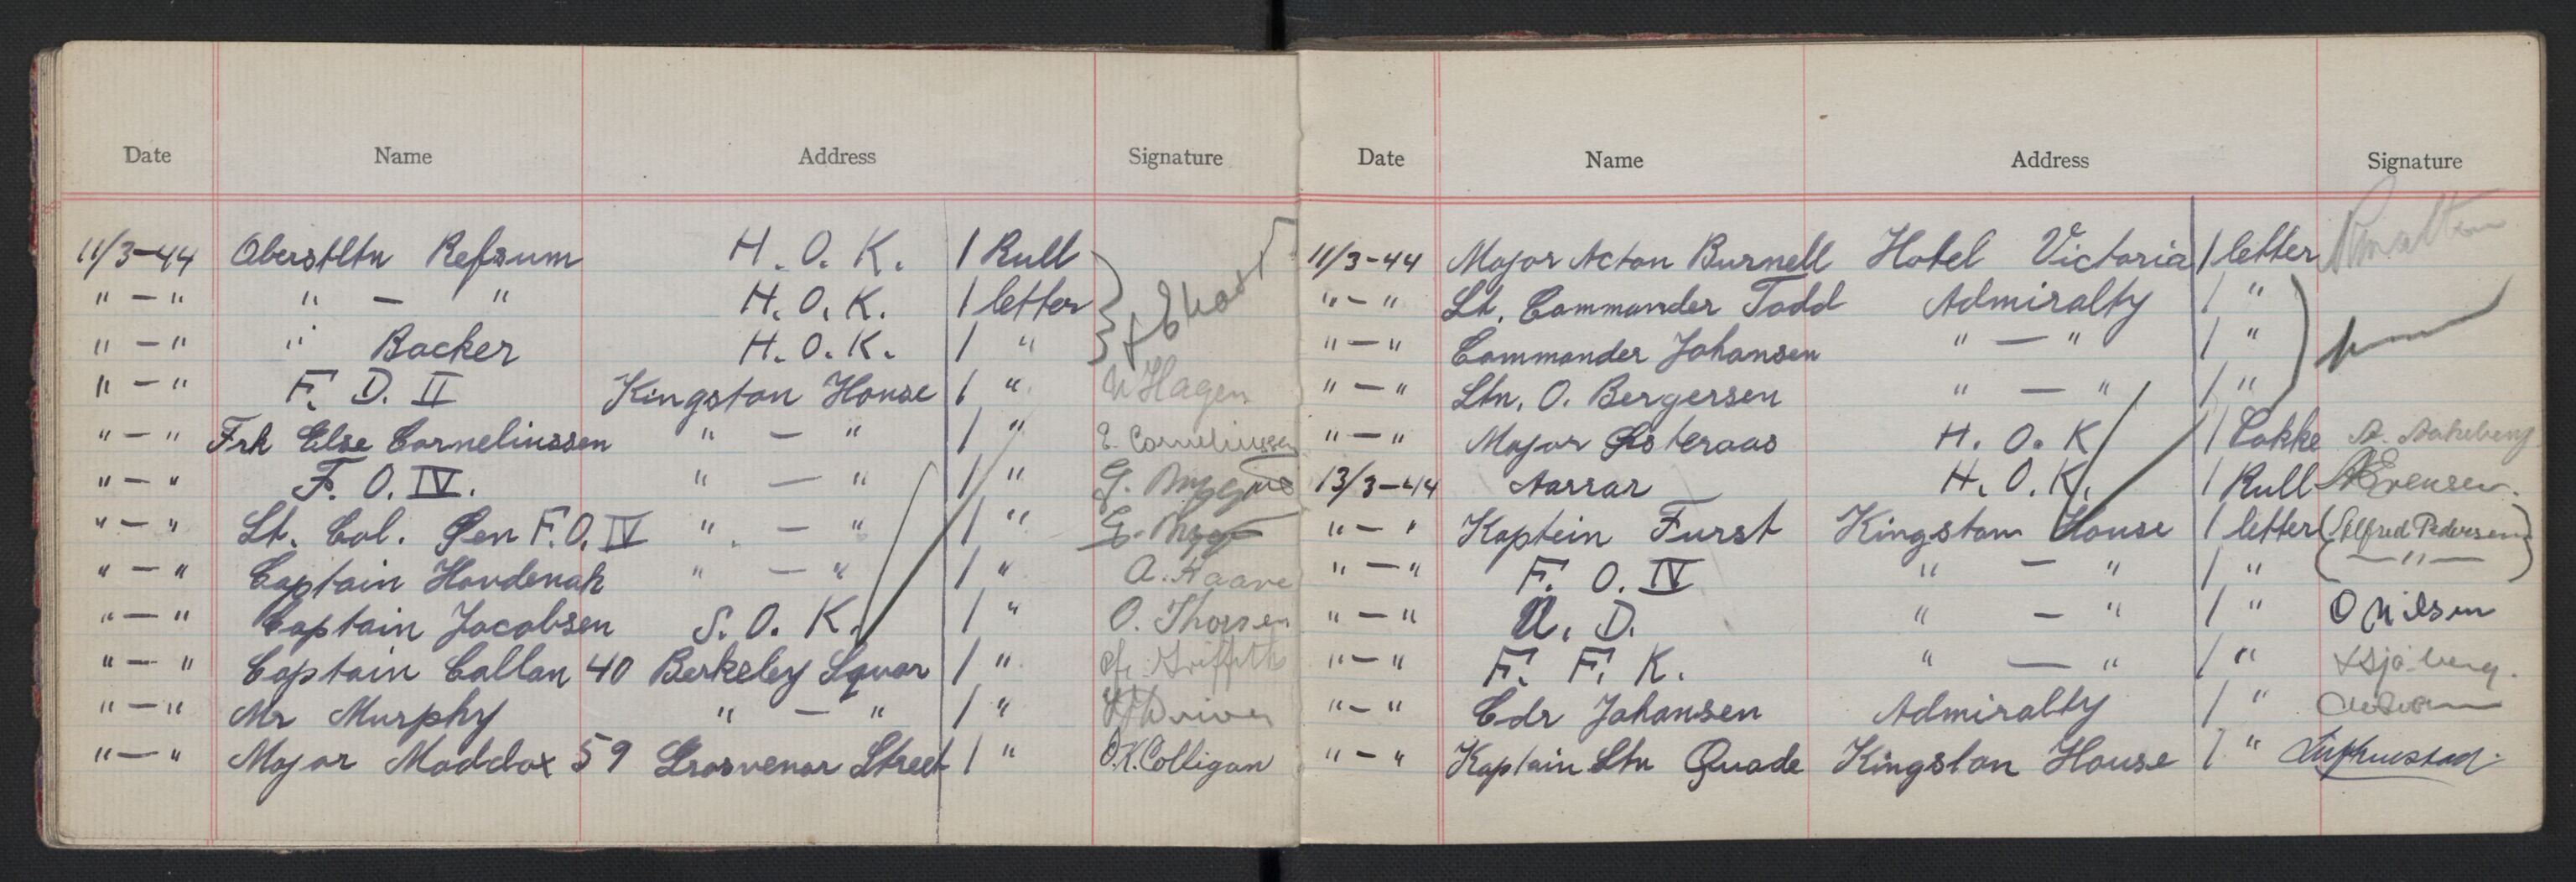 Date Name Address Signature
11/3-44 Oberstltn Refsum H. O. K. 1 Rull
" — " " — " H. O. K. 1 letter
" — " " Backer H. O. K. 1 "
" — " F. D. II Kingston House 1 " N Hagen
" — " Frk Else Corneliussen " — " 1 " E. Corneliussen
" — " F. O. IV. " — " 1 " G.
" — " Lt. Col. Øen F. O. IV " — " 1 " G.
" — " Captain Hovdenak " — " 1 " A. Haave
" — " Captain Jacobsen S. O. K. 1 " O. Thorsen
" — " Captain Callan 40 Berkeley Squar 1 " Griffith
" — " Mr Murphy " — " 1 " Driver
" — " Major Maddox 59 Grosvenor Street 1 " O.K. Colligan
Date Name Address Signature
11/3-44 Major Acton Burnell Hotel Victoria 1 letter
" — " Lt. Commander Todd Admiralty 1 "
" — " Commander Johansen " — " 1 "
" — " Ltn. O. Bergersen " — " 1 "
" — " Major Østeraas H. O. K 1 Pakke
13/3-44 Aarrar H. O. K. 1 Rull Evensen.
" — " Kaptein Furst Kingston House 1 letter (Alfred Pedersen)
" — " F. O. IV " — " 1 " — " —
" — " U. D. " — " 1 " O Nilsen
" — " F. F. K. " — " 1 " Sjøberg.
" — " Cdr Johansen Admiralty 1 "
" — " Kaptain Ltn Quade Kingston House 1 "